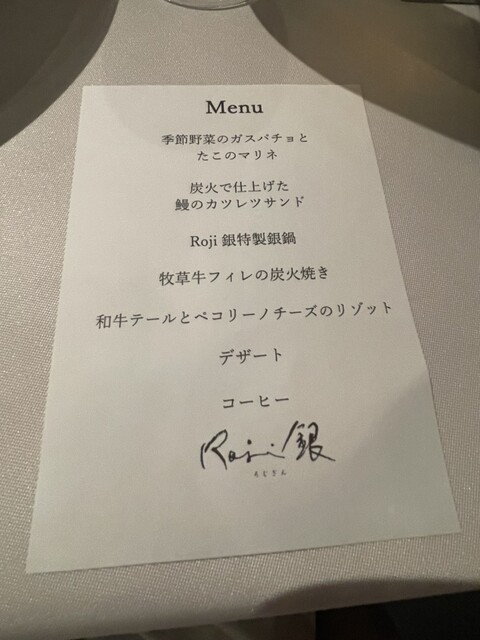 Menu
季節野菜のガスパチョと
たこのマリネ
炭火で仕上げた
鰻のカツレツサンド
Roji 銀特製銀鍋
牧草牛フィレの炭火焼き
和牛テールとペコリーノチーズのリゾット
デザート
コーヒー
Roji 銀
ろじぎん